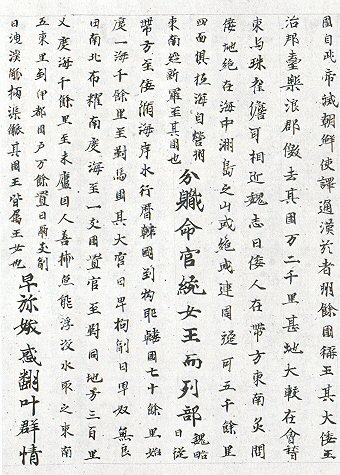 國自此帝滅朝鮮使譯通漢於者卅餘國稱王其大倭王
治邦臺樂浪郡儌去其國万二千里甚地大較在會稽
東与珠雀儋耳相近魏志曰倭人在帶方東南炙問
倭地絶在海中洲島之山或絶或連周旋可五千餘里
四面俱抵海自營州
東南經新羅至其國也
分職命官統女王而列部
魏略
曰從
帶方至倭循海岸水行曆韓國到拘耶韓國七十餘里始
度一海千餘里至對馬國其大官曰卑拘副曰卑奴無良
田南北布糴南度海至一支國置官至對同地方三百里
又度海千餘里至末盧國人善捕魚能浮沒水取之東南
五東里到伊都國戶万餘置曰爾支副
曰洩溪觚柄渠觚其國王皆屬王女也
卑弥娥惑翻叶群情